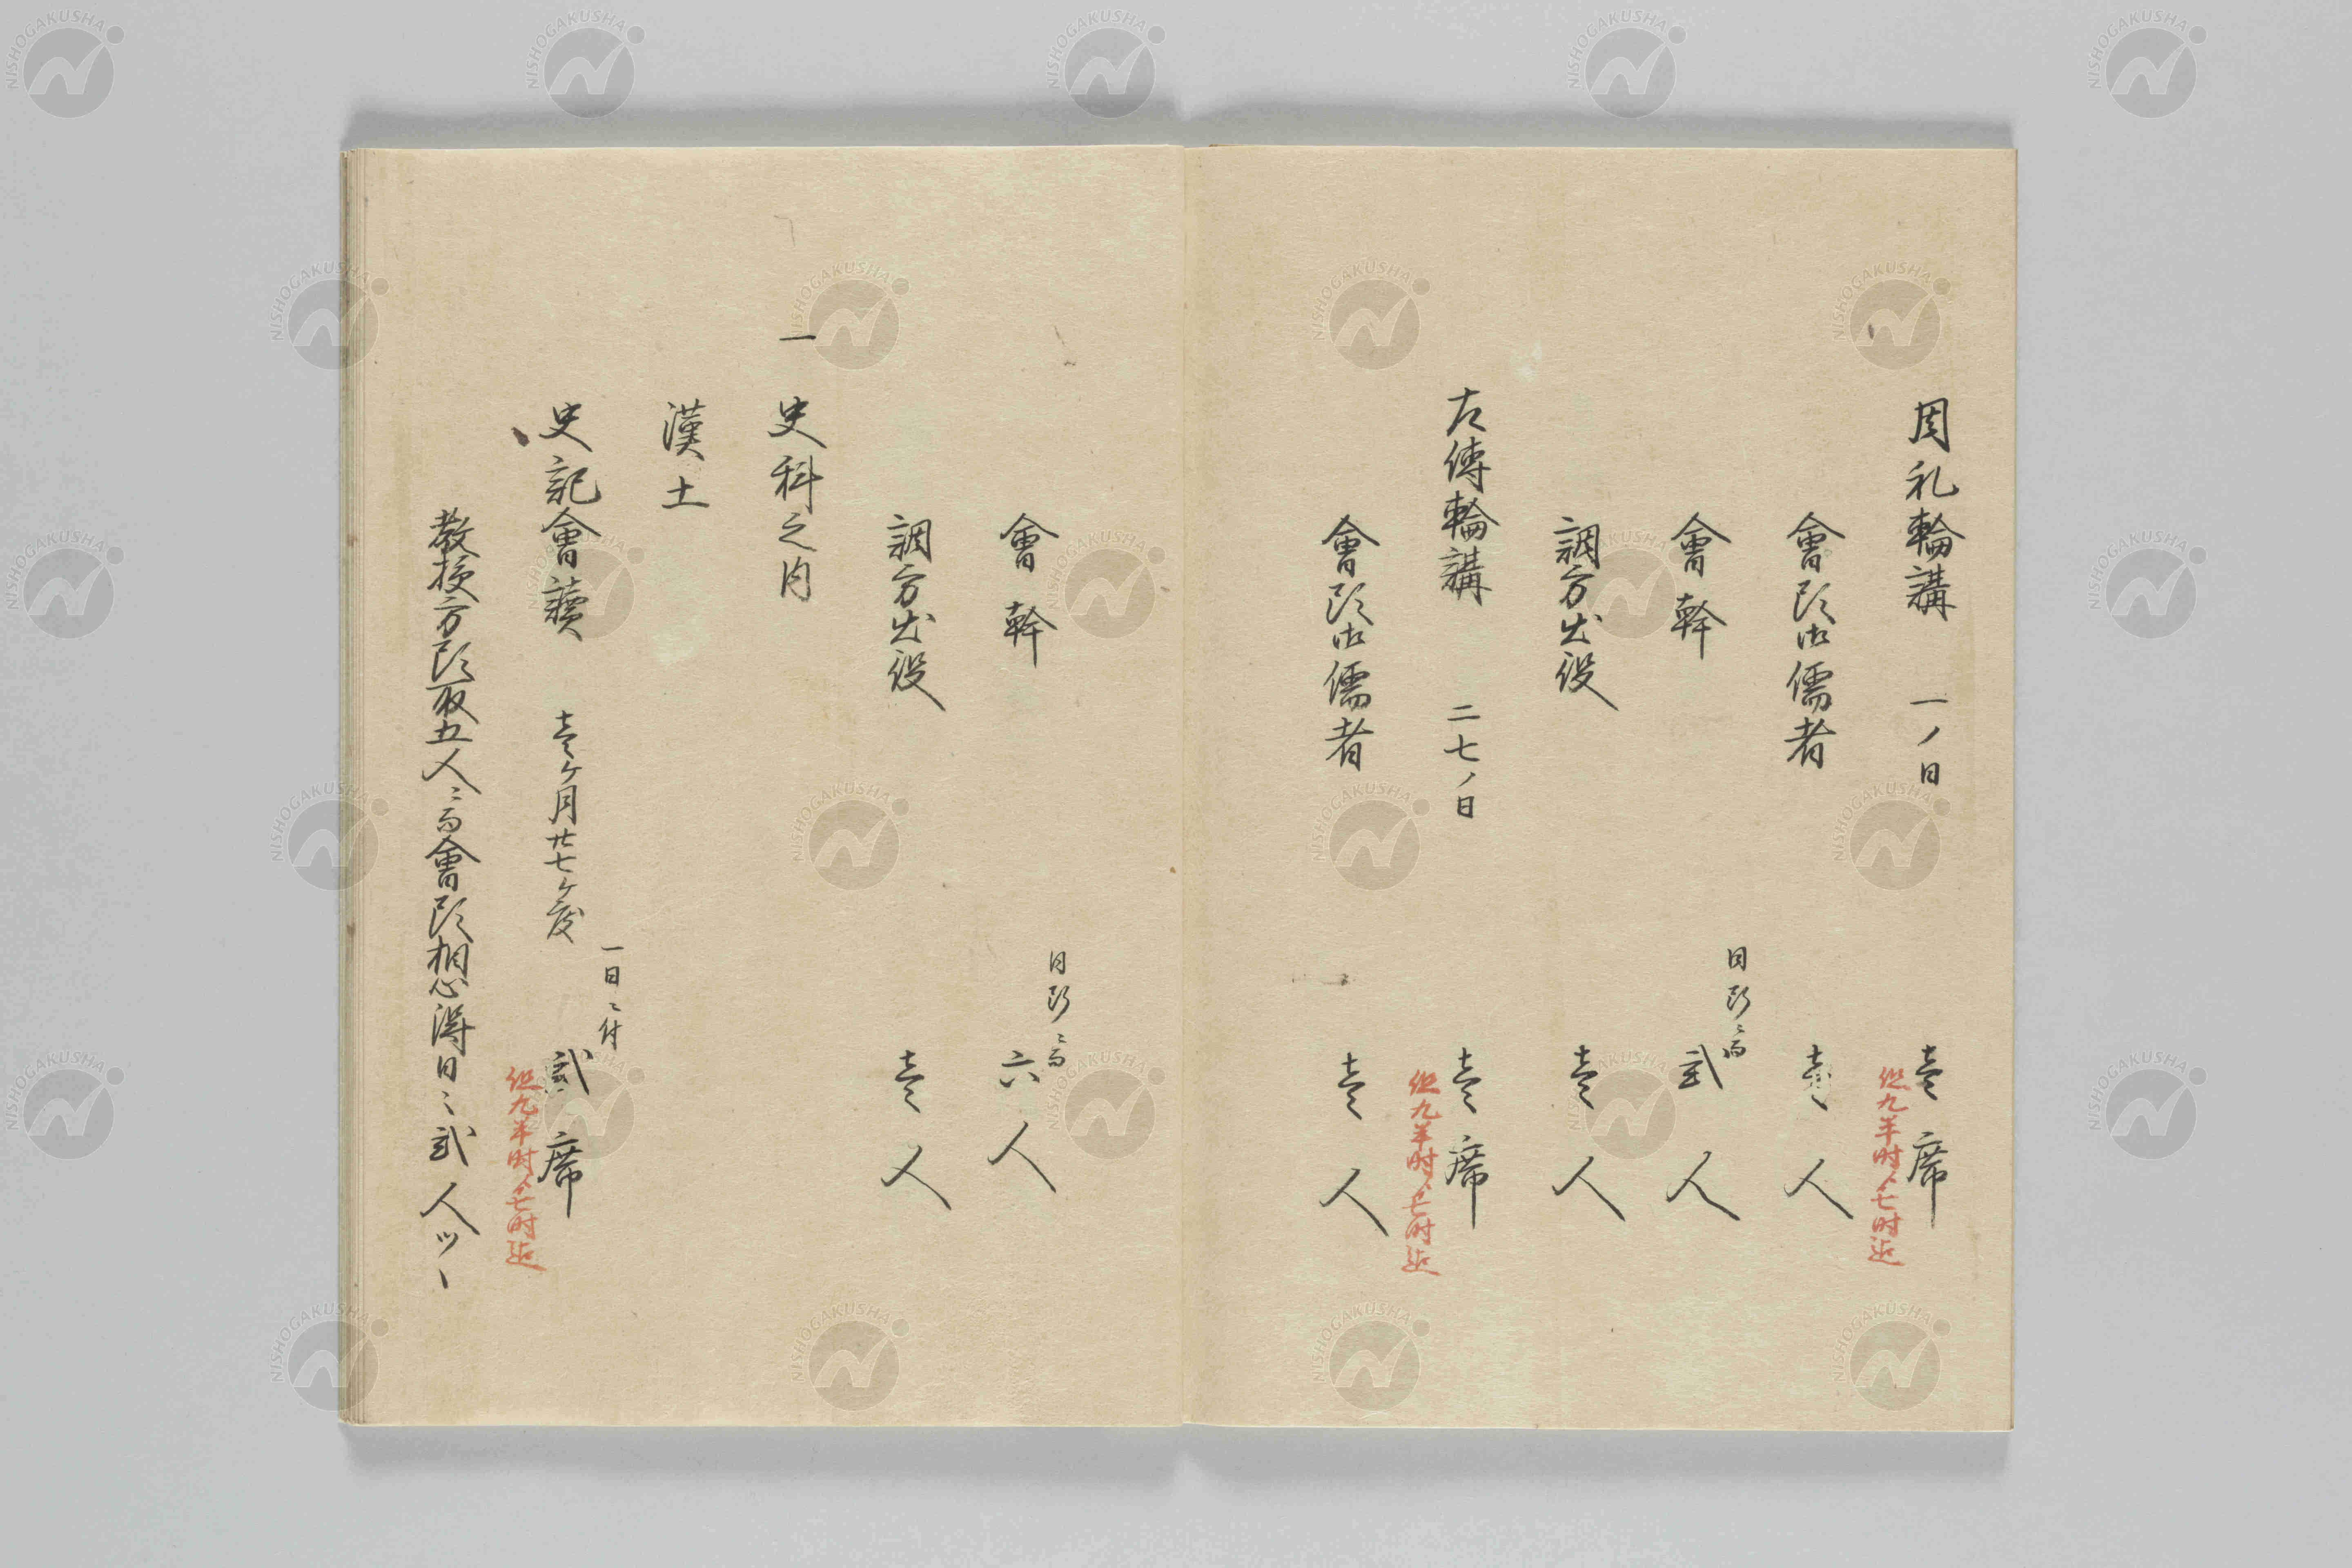 周礼輪講 一ノ日 壱席
但九半時ゟ七時迄
會頭御儒者 壱人
會幹 日割ニ而 弐人
調方出役 壱人
左傳輪講 二七ノ日 壱席
但九半時ゟ七時迄
會頭御儒者 壱人
會幹 日割ニ而 六人
調方出役 壱人
一 史科之内
漢土
史記會讀 壱ケ月廿七ケ度 一日ニ付 弐席
但九半時ゟ七時迄
教授方頭取五人ニ而會頭相心得日ニ弐人ツヽ
NISHOGAKUSHA